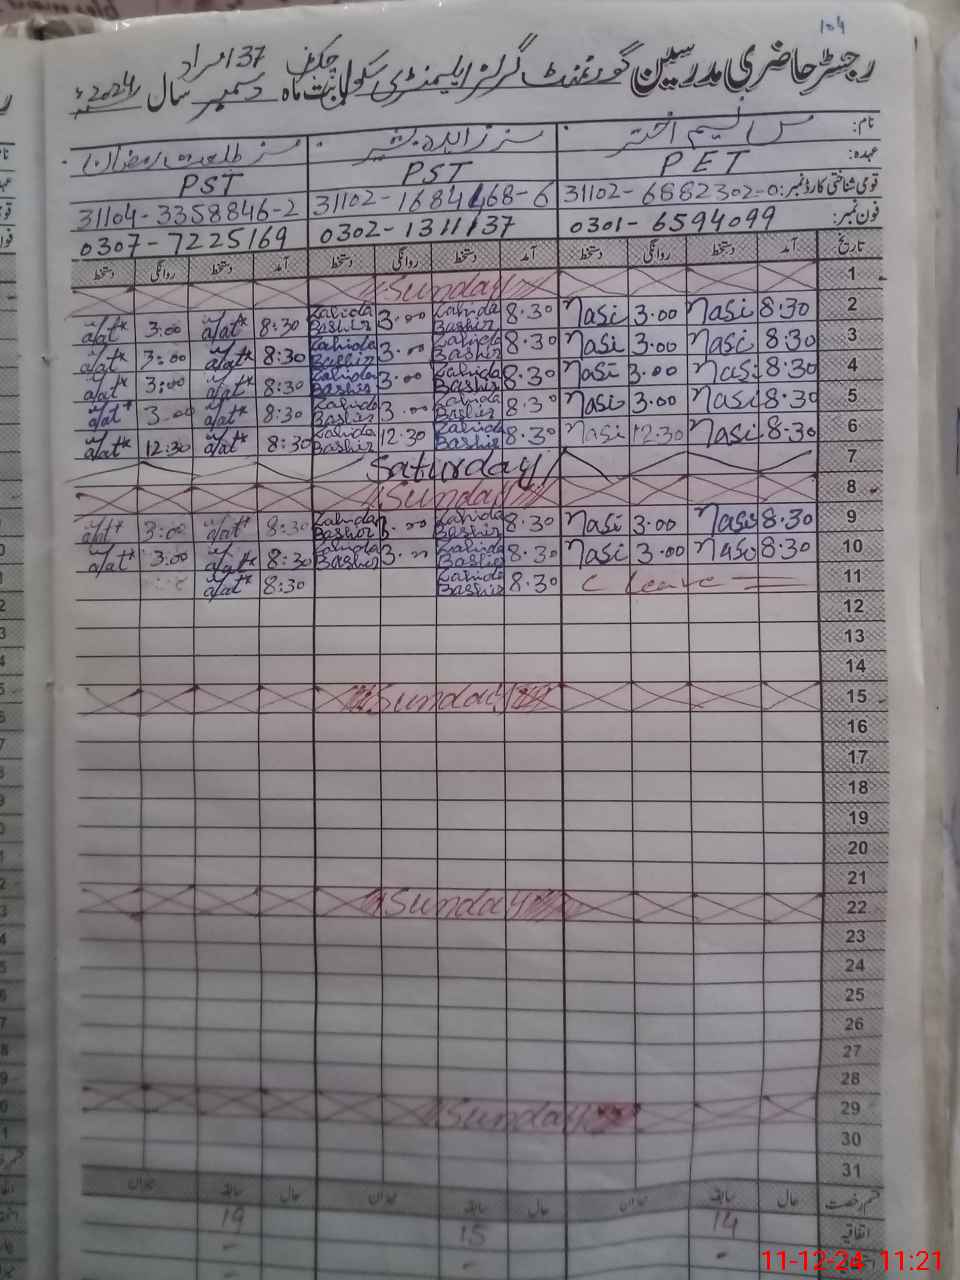 104
رجسٹر حاضری مدرسین گورنمنٹ گرلز ایلیمنٹری سکول چکنمبر 137 مراد بابت ماہ دسمبر سال 2024ء
نام: مس نسیم اختر مسز زاہدہ بشیر مسز
عہدہ: PET PST PST
قومی شناختی کارڈ نمبر: 31102-6882302-0 31102-1684468-6 31104-3358846-2
فون نمبر: 0301-6594099 0302-1311137 0307-7225169
تاریخ آمد دستخط روانگی دستخط آمد دستخط روانگی دستخط آمد دستخط روانگی دستخط
1 Sunday
2 8.30 Nasi 3.00 Nasi 8.30 Zahida Bashir 3.00 Zahida Bashir 8:30 3:00
3 8.30 Nasi 3.00 Nasi 8.30 Zahida Bashir 3.00 Zahida Bashir 8:30 3:00
4 8.30 Nasi 3.00 Nasi 8.30 Zahida Bashir 3.00 Zahida Bashir 8:30 3:00
5 8.30 Nasi 3.00 Nasi 8.30 Zahida Bashir 3.00 Zahida Bashir 8:30 3.00
6 8.30 Nasi 12.30 Nasi 8.30 Zahida Bashir 12.30 Zahida Bashir 8:30 12:30
7 Saturday
8 Sunday
9 8.30 Nasi 3.00 Nasi 8.30 Zahida Bashir 3.00 Zahida Bashir 8:30 3:00
10 8.30 Nasi 3.00 Nasi 8.30 Zahida Bashir 3.00 Zahida Bashir 8:30 3:00
11 C Leave 8.30 Zahida Bashir 8:30
12
13
14
15 Sunday
16
17
18
19
20
21
22 Sunday
23
24
25
26
27
28
29 Sunday
30
31
قسم رخصت حال سابقہ میزان حال سابقہ میزان حال سابقہ میزان
اتفاقیہ 14 15 19
11-12-24 11:21